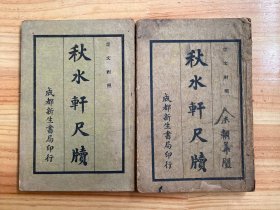 言文对照
秋水軒尺牘
成都新生書局印行
言文对照
秋水軒尺牘
成都新生書局印行